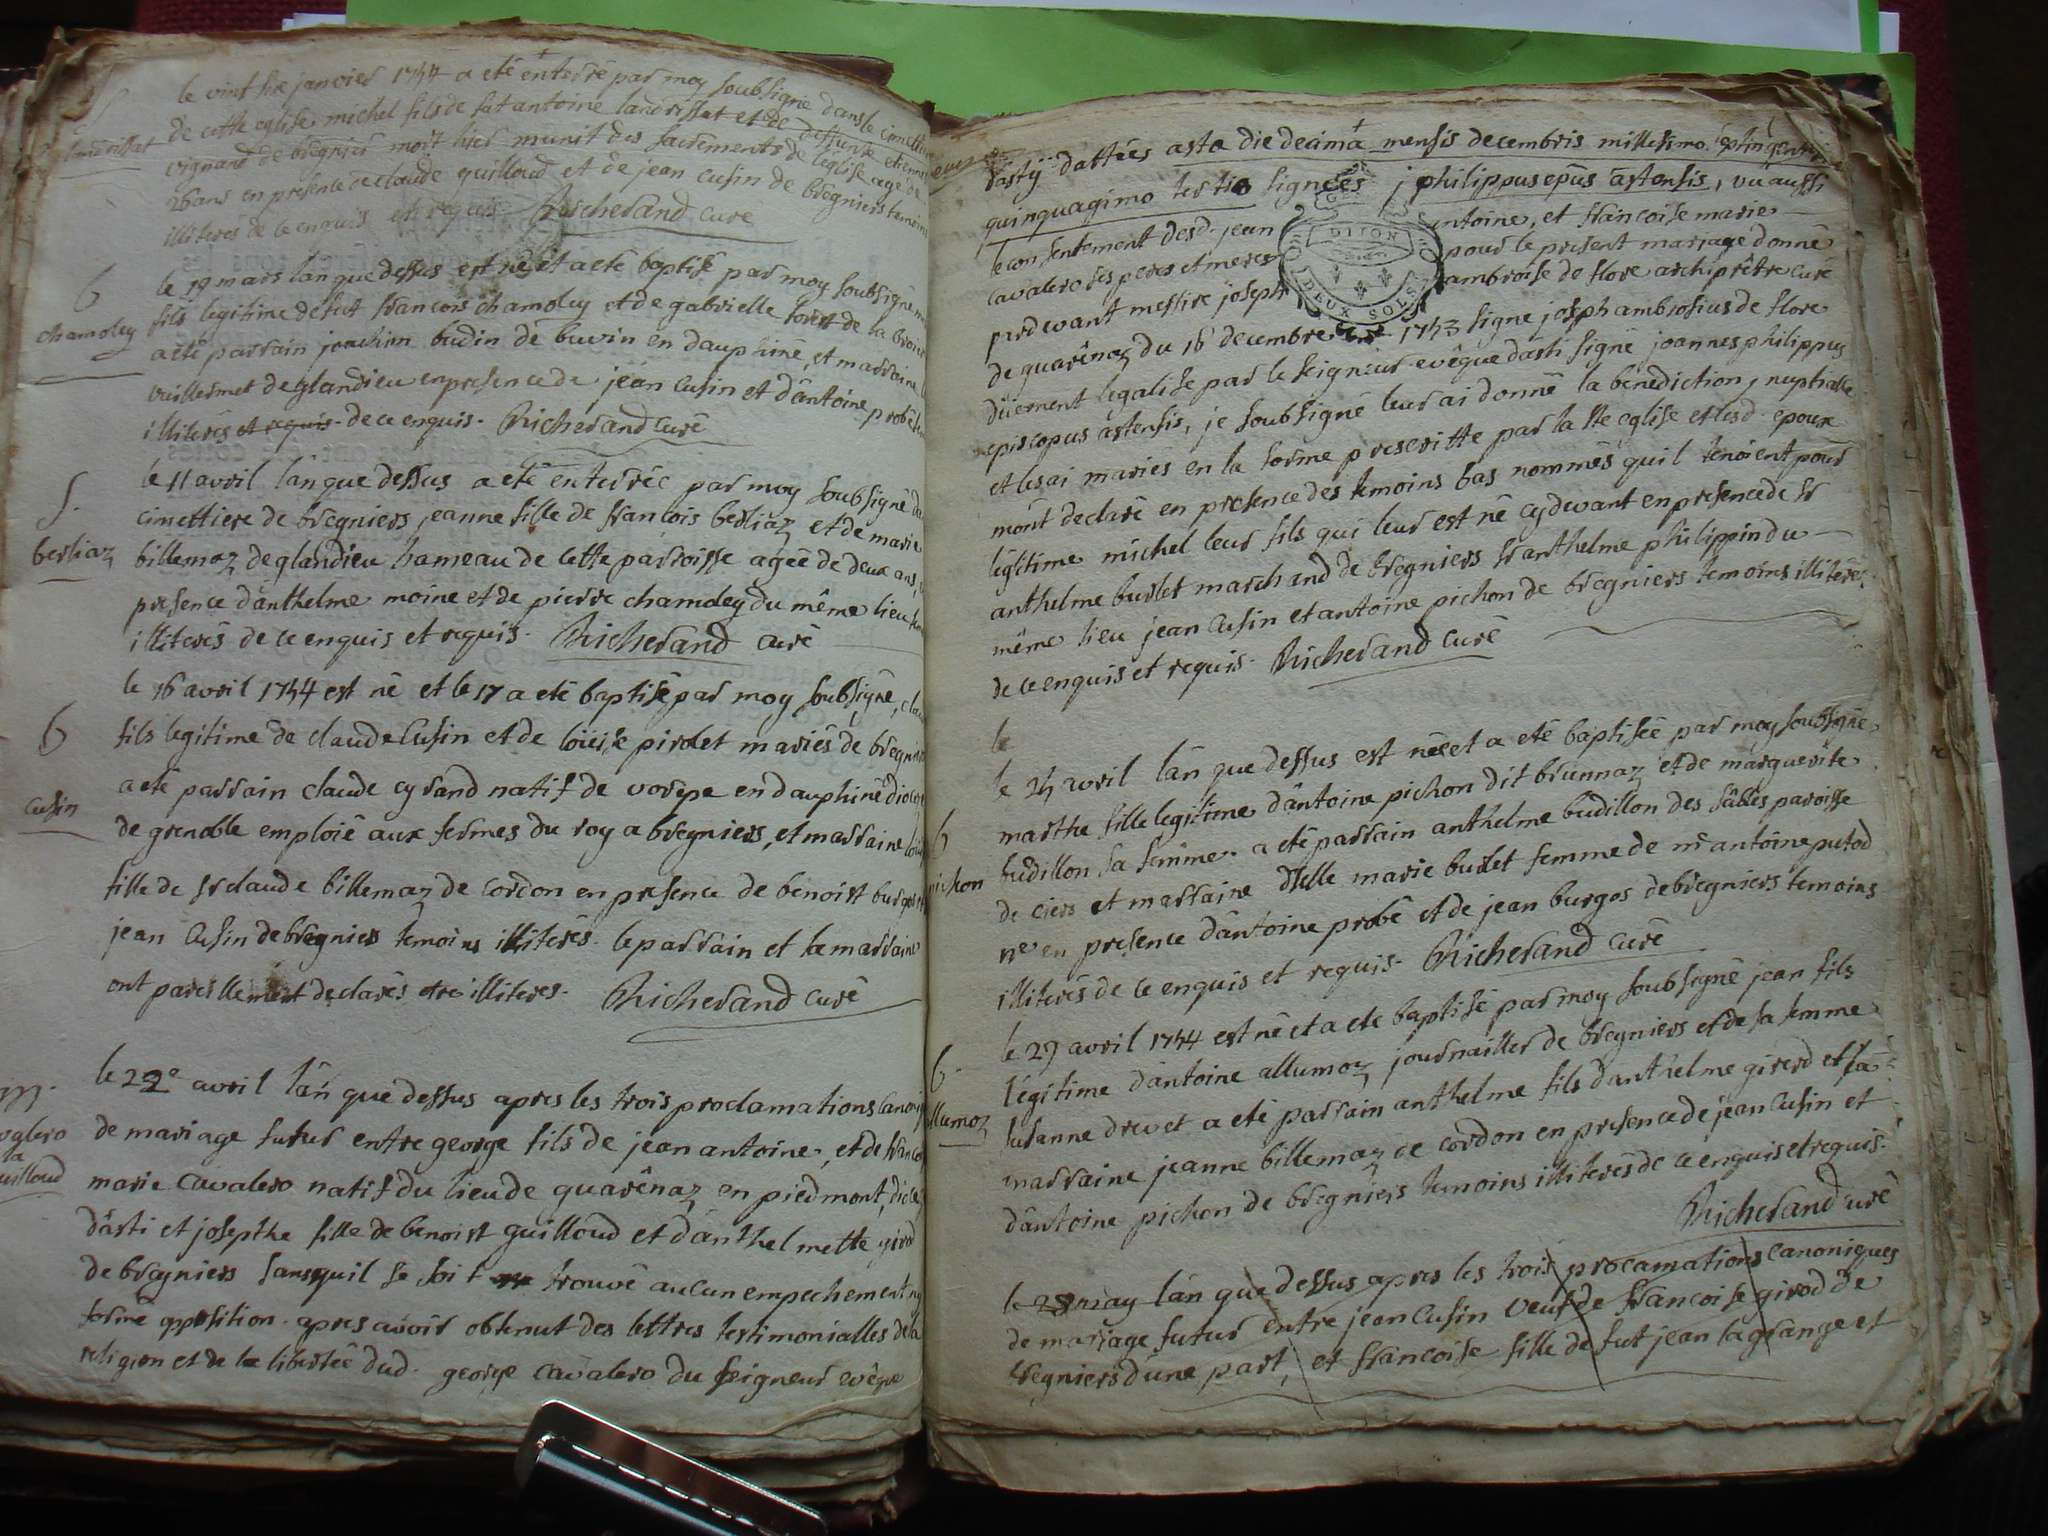 le vint six janvier 1754 a eté enterré par moy soubsigné dans le cimettiere
landrissat
de cette eglise michel fils de fut antoine landrissat et de
vignard de bregnier mort hier munit des sacrements de leglise agé de
26 ans en presence de claude guilloud et de jean cusin de bregniers temoins
illiterés de ce enquis et requis. Richerand curé
b
chamoley
le 19 mars lan que dessus est né et a eté baptisé par moy soubsigné
fils legitime de fut francois chamoley et de gabrielle
a eté parrain joachim budin de buvin en dauphiné, et marraine
vuillermet de glandieu en presence de jean cusin et dantoine probé
illiterés et requis de ce enquis. Richerand curé
s.
berliaz
le 11 avril lan que dessus a eté enterrée par moy soubsigné
cimettiere de bregniers jeanne fille de francois berliaz et de marie
billemaz de glandieu hameau de cette parroisse agée de deux ans,
presence danthelme moine et de pierre chamoley du même lieu
illiterés de ce enquis et requis. Richerand curé
b
cusin
le 16 avril 1754 est né et le 17 a eté baptisé par moy soubsigné,
fils legitime de claude cusin et de loüise pirolet mariés de bregniers
a eté parrain claude cyrand natif de vorepe en dauphiné
de grenoble emploié aux fermes du roy a bregniers, et marraine
fille de sr claude billemaz de cordon en presence de benoist
jean cusin de bregniers temoins illiterés. le parrain et la marraine
ont pareillement declarés etre illiteres. Richerand curé
m.
le 22e avril lan que dessus apres les trois proclamations
de mariage futur entre george fils de jean antoine, et de
marie cavalero natif du lieu de quarénaz en piedmont,
dasti et josepthe fille de benoist guilloud et danthelmette
de bregniers sans quil se soit trouvé aucun empechement ny
formé opposition. apres avoir obtenut des lettres testimonialles de la
religion et de la liberté dud. george cavalero du seigneur evêque
dastÿ dattées asta die decima mensis decembris millesimo
quinquagimo tertio signées j philippus epũs astensis, vu aussi
le consentement desd. jean antoine, et francoise marie
cavalero ses peres et meres pour le present mariage donné
DIJON
DEUX SOLS
pardevant messire joseph ambroise de flore archiprêtre curé
de quarénaz du 16 decembre 1753 signe joseph ambrosius de flore
duement legalisé par le seigneur evêque dasti signé joannes philippus
episcopus astensis, je soubsigné leur ai donné la benediction, nuptialle
et les ai mariés en la forme prescritte par la ste eglise et lesd. epoux
mont declaré en presence des temoins bas nommés quil tenoient pour
légitime michel leur fils qui leur est né cy devant en presence de sr
anthelme burlet marchand de bregniers sr anthelme philippin du
même lieu jean cusin et antoine pichon de bregniers temoins illiterés
de ce enquis et requis. Richerand curé
le
b
pichon
le 24 avril lan que dessus est née et a eté baptisée par moy soubsigné
marthe fille legitime dantoine pichon dit brunnaz et de marguerite
budillon sa femme. a eté parrain anthelme budillon des sables paroisse
de ciers et marraine dlle marie burlet femme de mr antoine putod
nre en presence dantoine probé et de jean burgos de bregniers temoins
illiterés de ce enquis et requis. Richerand curé
b.
le 29 avril 1754 est né et a eté baptisé par moy soubsigné jean fils
légitime dantoine allumoz journailler de bregniers et de sa femme
susanne drevet a eté parrain anthelme fils danthelme girerd et la
marraine jeanne billemaz de cordon en presence de jean cusin et
dantoine pichon de bregniers temoins illiterés de ce enquis et requis.
Richerand curé
le 28 may lan que dessus apres les trois procamations canoniques
de mariage futur entre jean cusin veuf de francoise girod de
bregniers dune part, et francoise fille de fut jean lagrange et